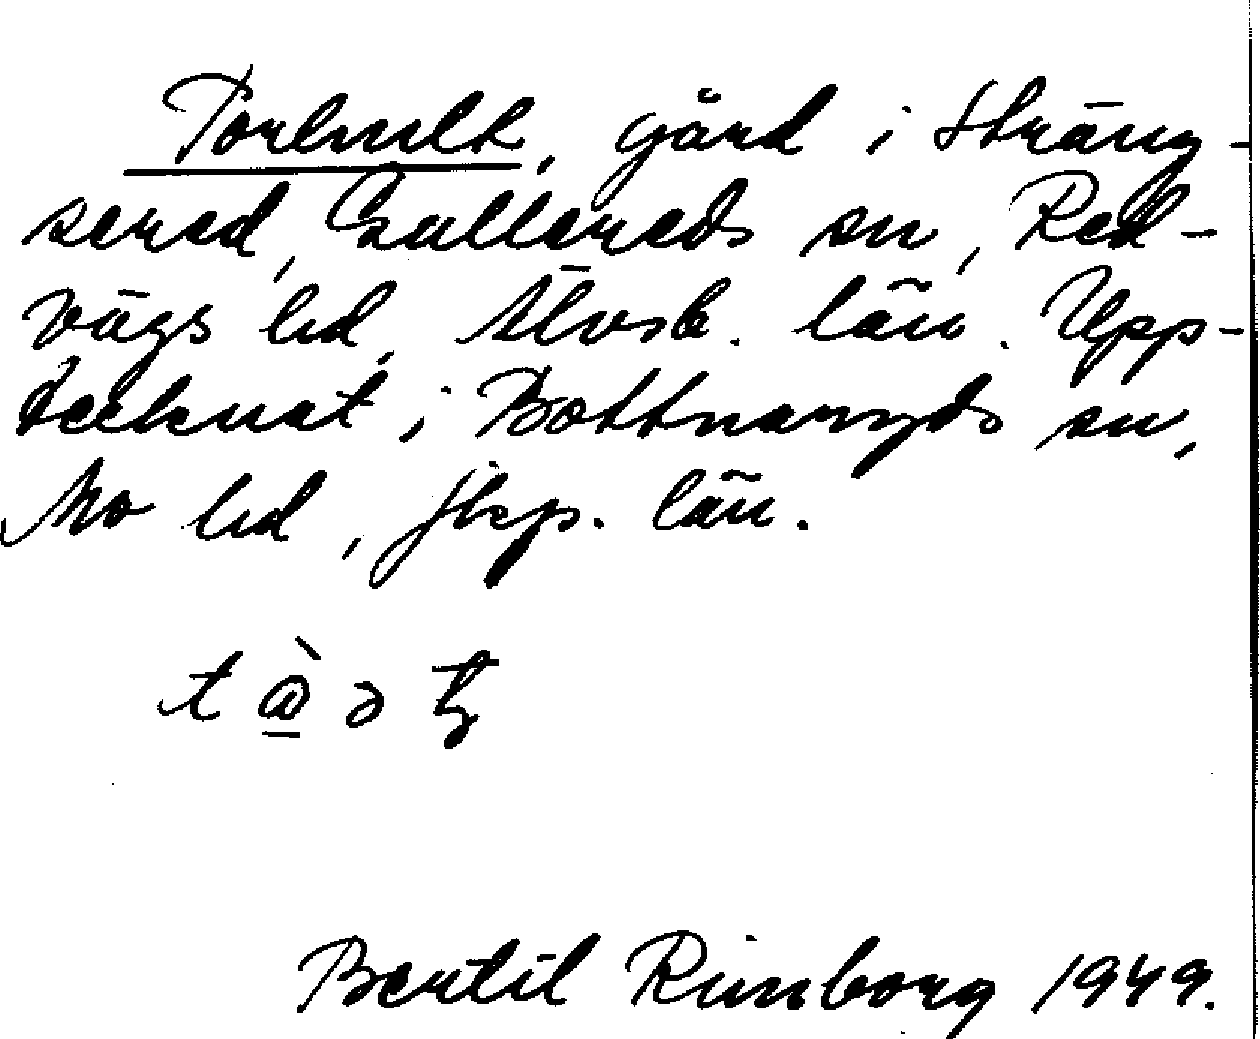 Torhult, gård i Sträng-
sered, Gullereds sn, Red-
vägs hd, Älvsb. län. Upp-
tecknat i Bottnaryds sn,
Mo hd, Jkp. län.
Bertil Rimborg 1949.